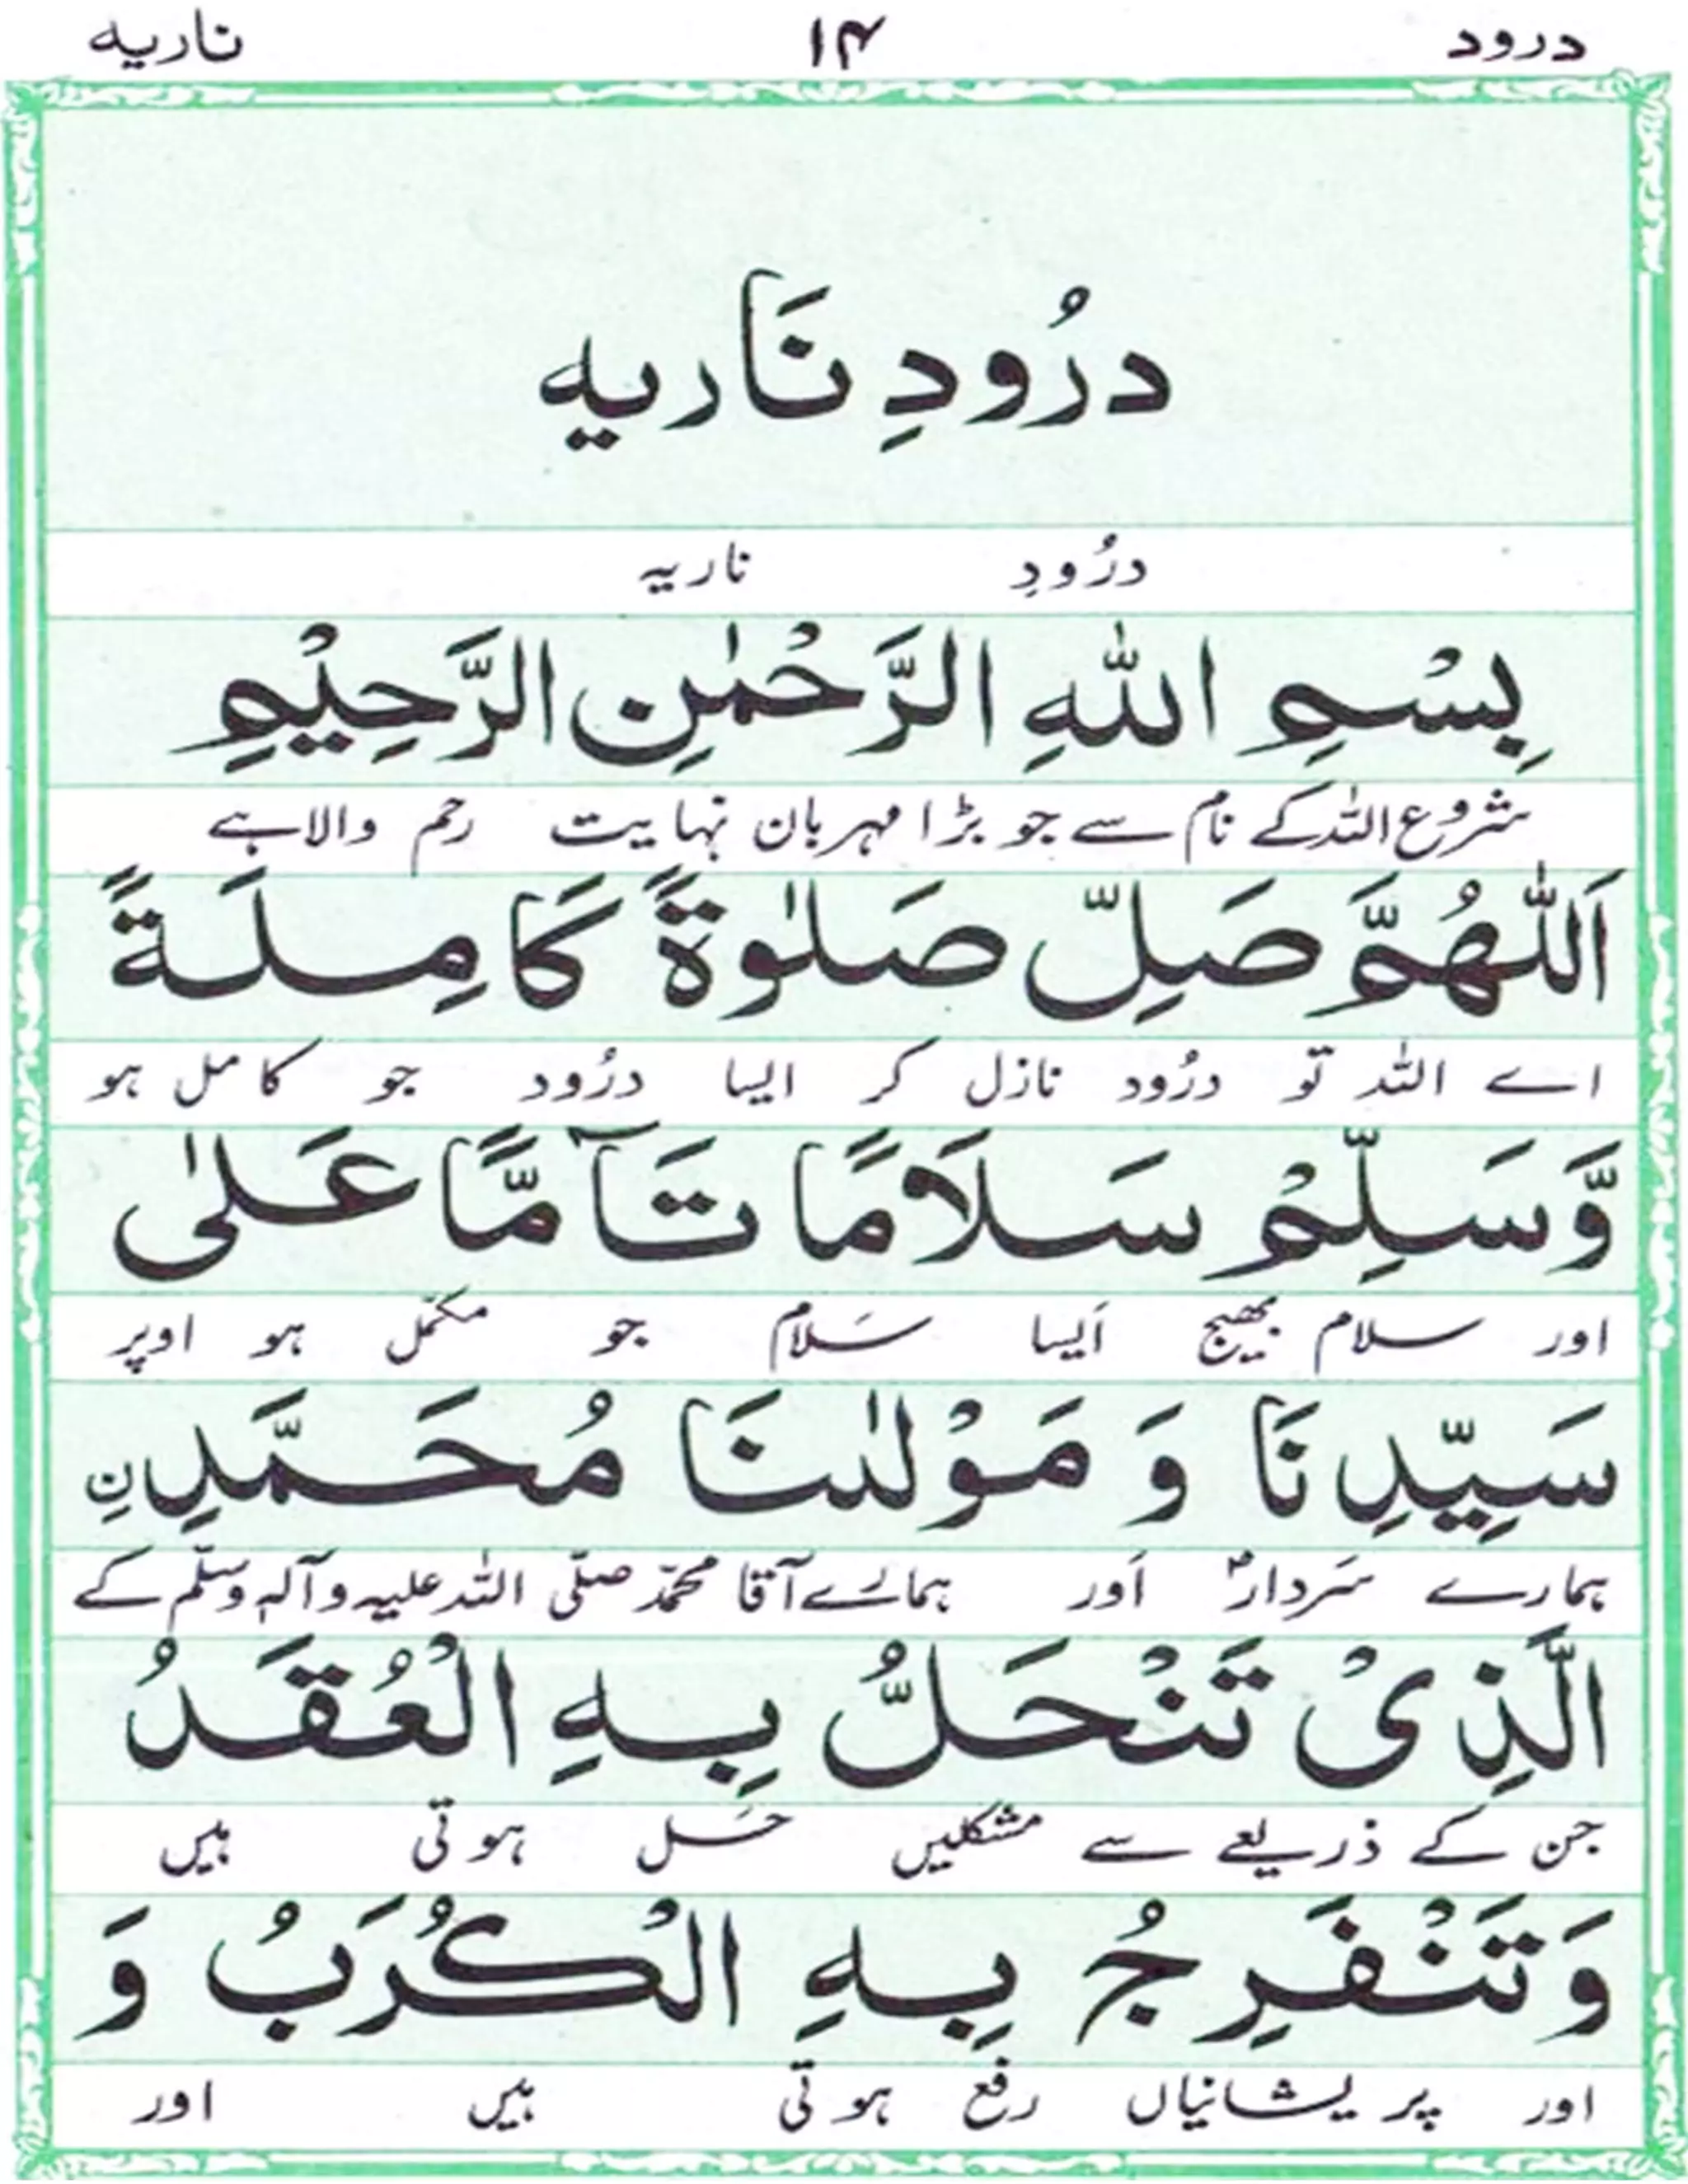 درود ۱۴ ناریہ
درُودِ نَاریہ
درُودِ ناریہ
بِسْمِ اللّٰهِ الرَّحْمٰنِ الرَّحِيْمِ
شروع اللہ کے نام سے جو بڑا مہربان نہایت رحم والا ہے
اَللّٰهُمَّ صَلِّ صَلٰوةً كَامِلَةً
اے اللہ تو درُود نازل کر ایسا درُود جو کامل ہو
وَّسَلِّمْ سَلَامًا تَآمًّا عَلٰى
اور سلام بھیج اَیسا سَلام جو مکمّل ہو اوپر
سَيِّدِنَا وَ مَوْلٰىنَا مُحَمَّدِ نِ
ہمارے سَردار اَور ہمارے آقا محمّد صلّی اللہ علیہ وآلہٖ وسلّم کے
الَّذِىْ تَنْحَلُّ بِهِ الْعُقَدُ
جن کے ذریعے سے مشکلیں حَل ہوتی ہیں
وَتَنْفَرِجُ بِهِ الْكُرَبُ وَ
اور پریشانیاں رفع ہوتی ہیں اور